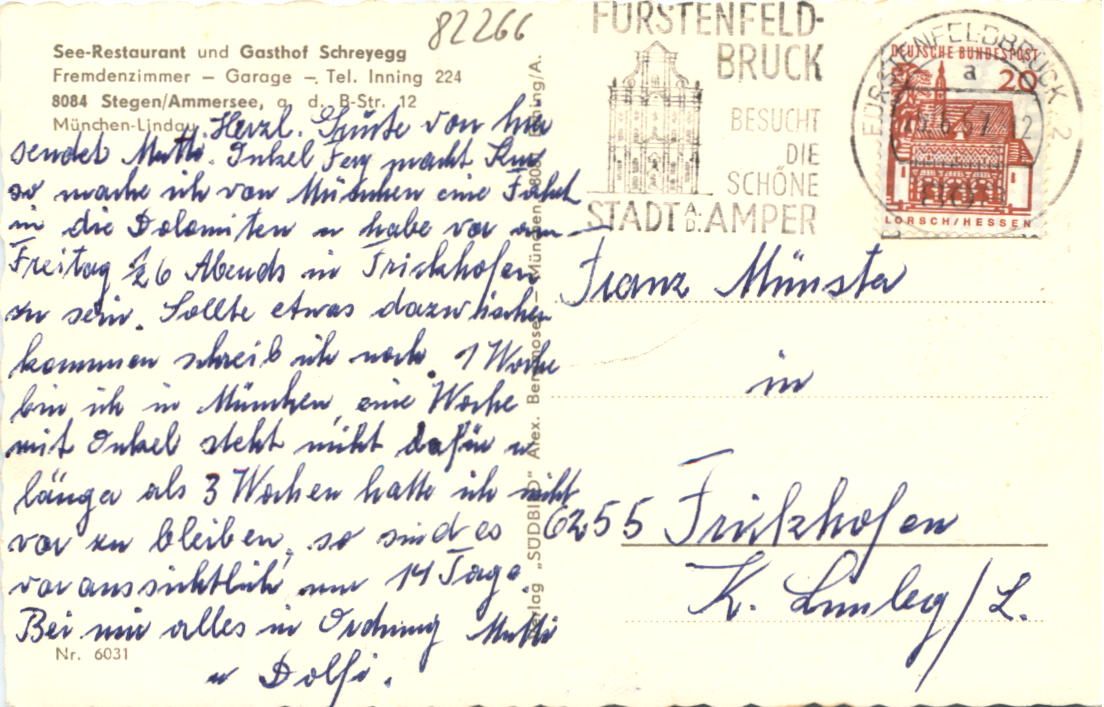 82266
See-Restaurant und Gasthof Schreyegg
Fremdenzimmer – Garage – Tel. Inning 224
8084 Stegen/Ammersee, a. d. B-Str. 12
München-Lindau
Herzl. Grüße von hier
sendet Mutti. Onkel Ferg macht Kur
so mache ich von München eine Fahrt
in die Dolomiten u habe vor am
Freitag 1/26 Abends in Frickhofen
zu sein. Sollte etwas dazwischen
kommen schreib ich noch. 1 Woche
bin ich in München, eine Woche
mit Onkel steht nicht dafür u
länger als 3 Wochen hatte ich nicht
vor zu bleiben, so sind es
voraussichtlich nur 14 Tage
Bei mir alles in Ordnung Mutti
u Dolfi.
Nr. 6031
Verlag „SÜDBILD“ Alex. Bernmoser – München
FÜRSTENFELD-
BRUCK
BESUCHT
DIE
SCHÖNE
STADT A. D. AMPER
FÜRSTENFELDBRUCK 2
a
DEUTSCHE BUNDESPOST
20
LORSCH/HESSEN
Franz Münster
in
6255 Frickhofen
K. Limbg/L.